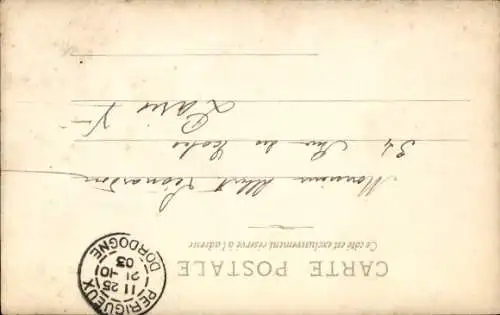 CARTE POSTALE
Ce côté est exclusivement réservé à l'adresse
Monsieur Albert Léonardon
34 Rue des Ecoles
Paris V
PERIGUEUX
11 25
21 -10
03
DORDOGNE